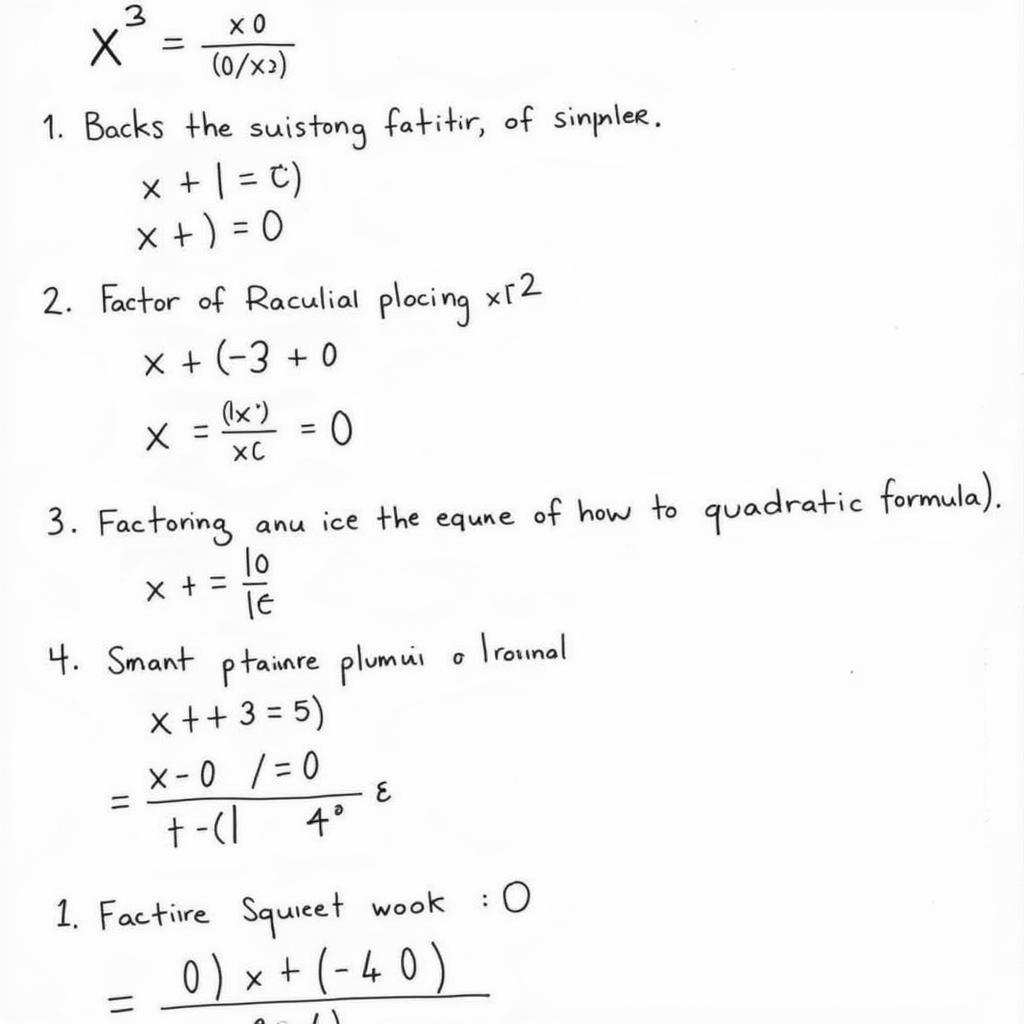 x³ = x 0 / (0/x2)
1. Backs the suistong fatitir, of sinpler.
x + | = C)
x + ) = 0
2. Factor of Raculial plocing xr2
x + (-3 + 0
x = (lx') / xC = 0
3. Factoring anu ice the equne of how to quadratic formula).
x + = 10 / 1E
4. Smant ptainre plumii o lrounal
x + + 3 = 5)
= x - 0 / = 0
t - (| 4° ε
1. Factire Squieet wook : O
= 0) x + (-4 0)